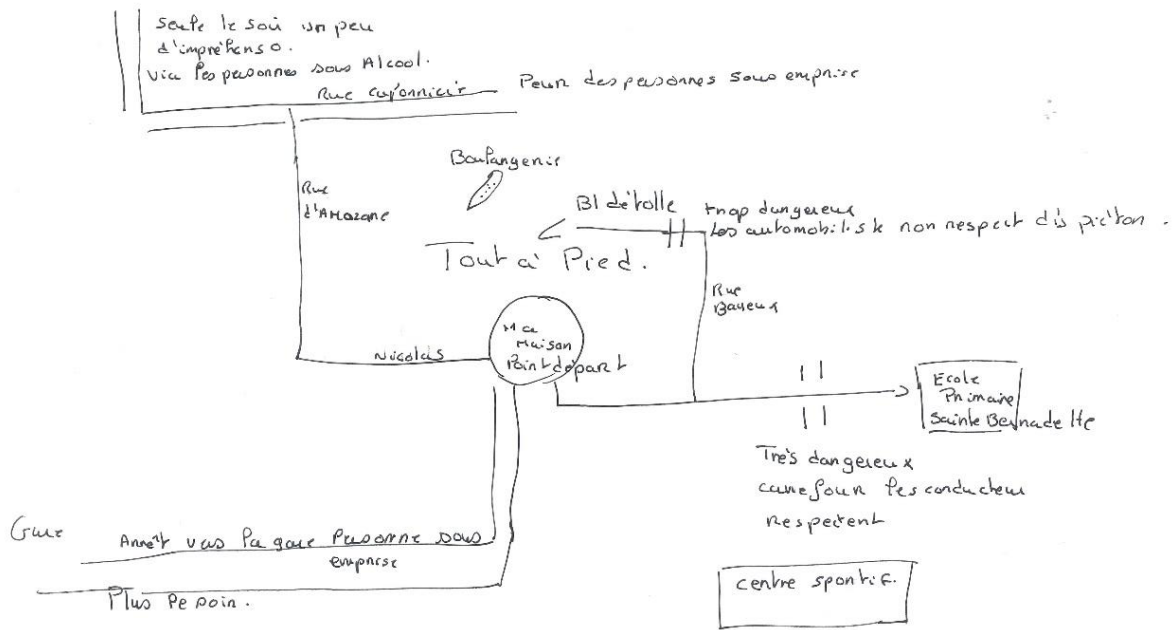 Seule le soir un peu
d'impréhenso.
via les personnes sous Alcool.
Rue
Peur des personnes sous emprise
Boulangerie
Rue
d'Amazone
Bl détolle
trop dangereux
Les automobiliste non respect dis piéton.
Tout à Pied.
Rue
Bayeux
Ma
Maison
Point départ
Nicolas
Ecole
Primaire
Sainte Bernadette
Très dangereux
carrefour les conducteur
Respectent
Gare
Arrêt vers la gare Personne sous
emprise
Plus le soir.
centre sportif.